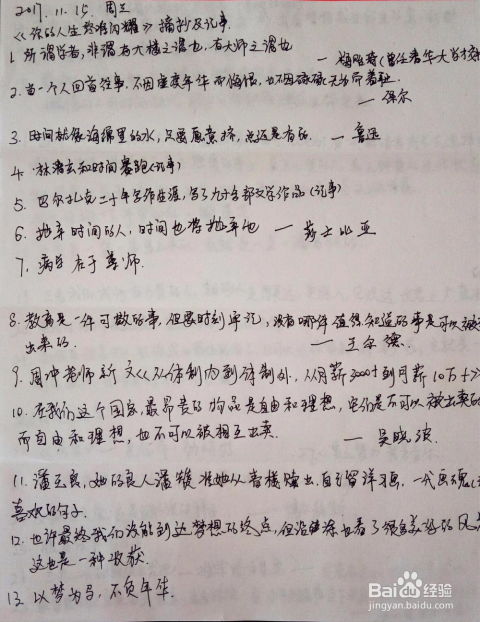 2017.11.15. 周三
《你的人生终将闪耀》摘抄及记事.
1. 所谓学者,非谓有大楼之谓也,有大师之谓也
— 梅贻琦(曾任清华大学校
2. 当一个人回首往事,不因虚度年华而悔恨,也不因碌碌无为而羞耻.
— 保尔
3. 时间就像海绵里的水,只要愿意挤,总还是有的. — 鲁迅
4. 林清玄和时间赛跑(记事)
5. 巴尔扎克二十年写作生涯,写了九十余部文学作品(记事)
6. 抛弃时间的人,时间也将抛弃他 — 莎士比亚
7. 病 在于善师.
8. 教育是一件可敬的事,但要时刻牢记,没有哪件值得知道的事是可以被
出来的. — 王尔德.
9. 周冲老师新文《从体制内到体制外,从月薪3000+到月薪10万+》
10. 在我们这个国家,最昂贵的物品是自由和理想,它们是不可以被出卖的
而自由和理想,也不可以被相互出卖. — 吴晓波
11. 潘玉良,她的良人潘赞化将她从青楼赎出,自己留洋习画,一代画魂(
喜欢的句子.
12. 也许最终我们没能到达梦想的终点,但沿途也看了很多美好的风
这也是一种收获.
13. 以梦为马,不负年华.
Baidu经验
jingyan.baidu.com